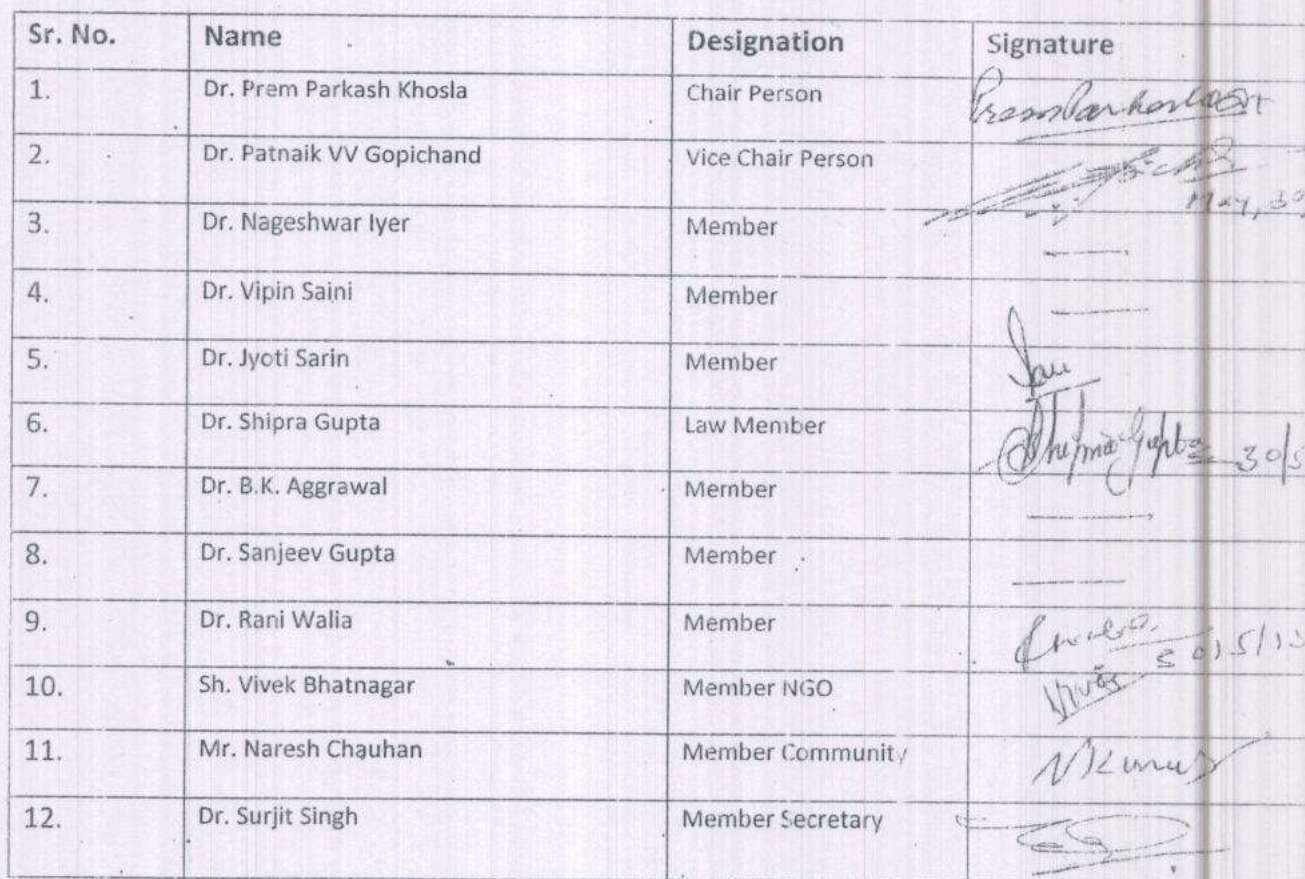 Sr. No. Name Designation Signature
1. Dr. Prem Parkash Khosla Chair Person
2. Dr. Patnaik VV Gopichand Vice Chair Person
May, 30
3. Dr. Nageshwar Iyer Member
4. Dr. Vipin Saini Member
5. Dr. Jyoti Sarin Member
6. Dr. Shipra Gupta Law Member Shipra Gupta 30/5
7. Dr. B.K. Aggrawal Member
8. Dr. Sanjeev Gupta Member
9. Dr. Rani Walia Member 30/5/13
10. Sh. Vivek Bhatnagar Member NGO Vivek
11. Mr. Naresh Chauhan Member Community NKumar
12. Dr. Surjit Singh Member Secretary